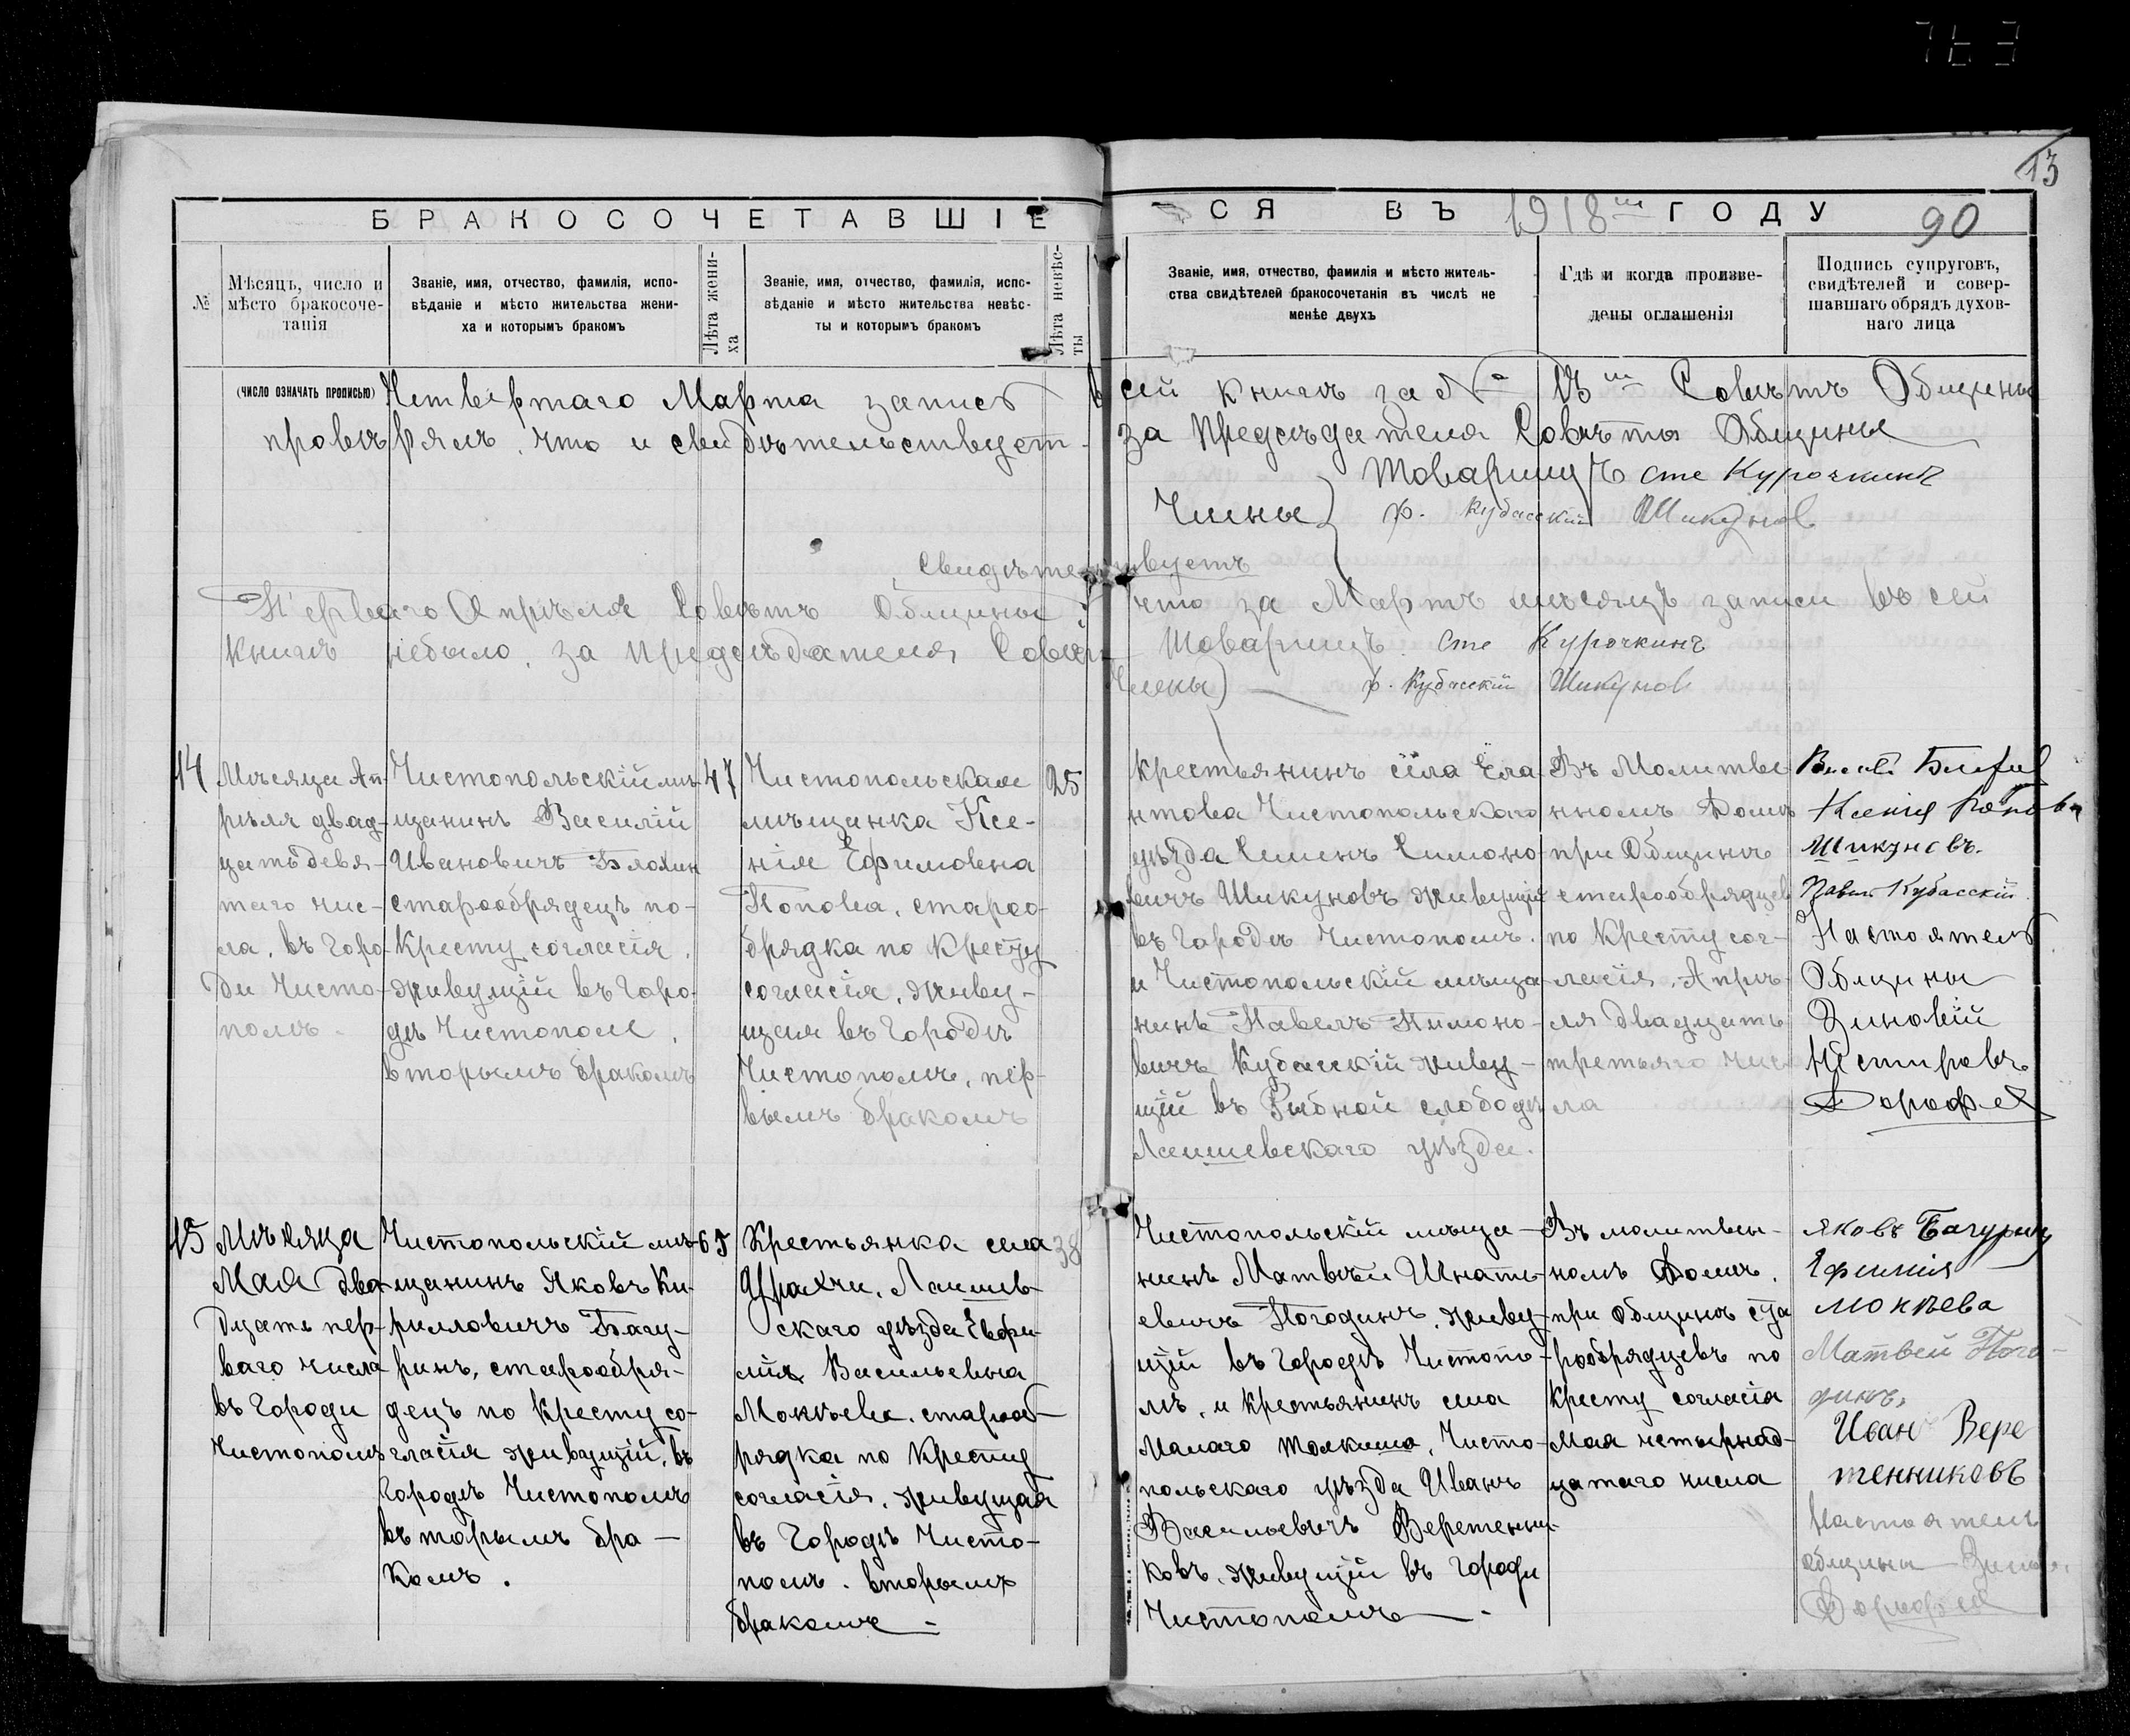 763
13
БРАКОСОЧЕТАВШІЕ-СЯ ВЪ 1918 ГОДУ
90
№
Мѣсяцъ, число и
мѣсто бракосоче-
танія
Званіе, имя, отчество, фамилія, испо-
вѣданіе и мѣсто жительства жени-
ха и которымъ бракомъ
Лѣта жени-
ха
Званіе, имя, отчество, фамилія, испо-
вѣданіе и мѣсто жительства невѣс-
ты и которымъ бракомъ
Лѣта невѣс-
ты
Званіе, имя, отчество, фамилія и мѣсто житель-
ства свидѣтелей бракосочетанія въ числѣ не
менѣе двухъ
Гдѣ и когда произве-
дены оглашенія
Подпись супруговъ,
свидѣтелей и совер-
шавшаго обрядъ духов-
наго лица
(ЧИСЛО ОЗНАЧАТЬ ПРОПИСЬЮ) Четвертаго Марта запись въ сей книгѣ за № 13 Совѣтъ Общины
провѣрялъ, что и свидѣтельствуетъ. за Предсѣдателя Совѣта Общины
Товарищъ Сте Курочкинъ
Члены) Ф. Кубасскій Шикунов
свидѣтельствуетъ
Перваго Апрѣля Совѣтъ Общины что за Мартъ мѣсяцъ записи въ сей
книгѣ небыло, за предсѣдателя Совѣта Товарищъ Сте Курочкинъ
Члены) Ф. Кубасскій Шикунов
14
Мѣсяца Ап-
рѣля двад-
цать девя-
таго чис-
ла, въ Горо-
де Чисто-
полѣ.
Чистопольскій мѣ-
щанинъ Василій
Ивановичъ
старообрядецъ по-
Кресту согласія,
живущій въ Горо-
дѣ Чистополе,
вторымъ бракомъ
47
Чистопольская
мѣщанка Ксе-
нія Ефимовна
Попова, староо-
брядка по Кресту
согласія, живу-
щая въ Городѣ
Чистополѣ, пер-
вымъ бракомъ
25
Крестьянинъ села Ела-
нтова Чистопольскаго
уѣзда Симонъ Симоно-
вичъ Шикуновъ живущій
въ Городѣ Чистополѣ.
и Чистопольскій мѣща-
нинъ Павелъ Пимоно-
вичъ Кубасскій живу-
щій въ Рыбной слободѣ
Лаишевскаго уѣзда.
Въ Молитве-
нномъ Домѣ
при Общинѣ
старообрядцев
по Кресту сог-
ласія, Апрѣ-
ля двадцать
третьяго чис-
ла
Ксения Попова
Шикуновъ.
Павел Кубасскій
Настоятель
Общины
Зиновій
Дорофея
15
Мѣсяца
Мая два-
дцать пер-
ваго числа
въ Городи
Чистополѣ
Чистопольскій мѣ-
щанинъ Яковъ Ки-
рилловичъ Багу-
ринъ, старообря-
децъ по Кресту со-
гласія живущій, въ
Городѣ Чистополѣ
въторымъ бра-
комъ.
65
Крестьянка села
Лаишев-
скаго уѣзда Евфи-
мія Васильевна
Мокѣева. староб-
рядка по Кресту
согласія, живущая
въ Городѣ Чисто-
полѣ. вторымъ
бракомъ
38
Чистопольскій мѣща-
нинъ Матвѣй Игнать-
евичъ Погодинъ, живу-
щій въ Городѣ Чистопо-
лѣ, и крестьянинъ села
Малаго Толкиша, Чисто-
польскаго уѣзда Иванъ
Васильевичъ Веретенни-
ковъ, живущій въ Городи
Чистополѣ
Въ молитвен-
номъ Домѣ,
при Общинѣ ста
рообрядцевъ по
Кресту согласія
Мая четырнад-
цатаго числа
Яковъ Багуринъ
Ефимія
Мокѣева
Матвей Пого-
динъ,
Иван Вере
тенниковъ
Настоятель
общины
Дорофея